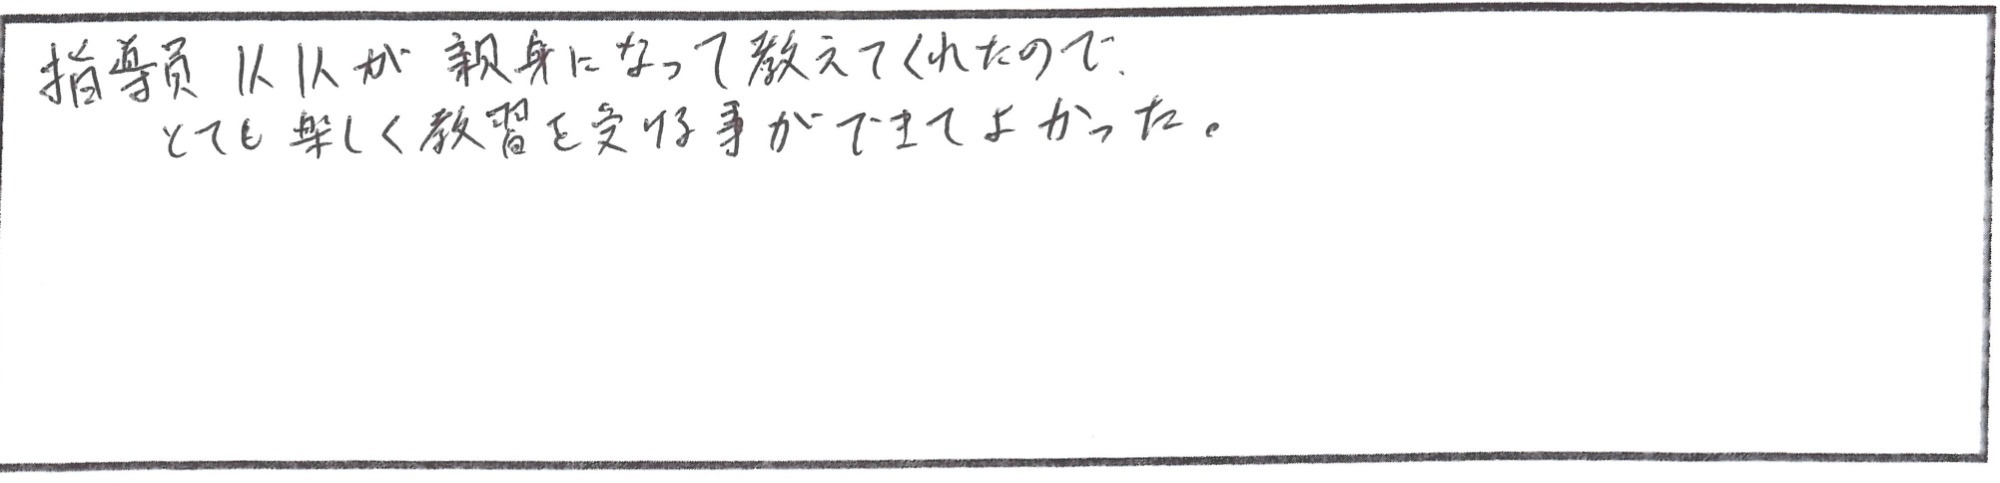 指導員1人1人が親身になって教えてくれたので、
とても楽しく教習を受ける事ができてよかった。